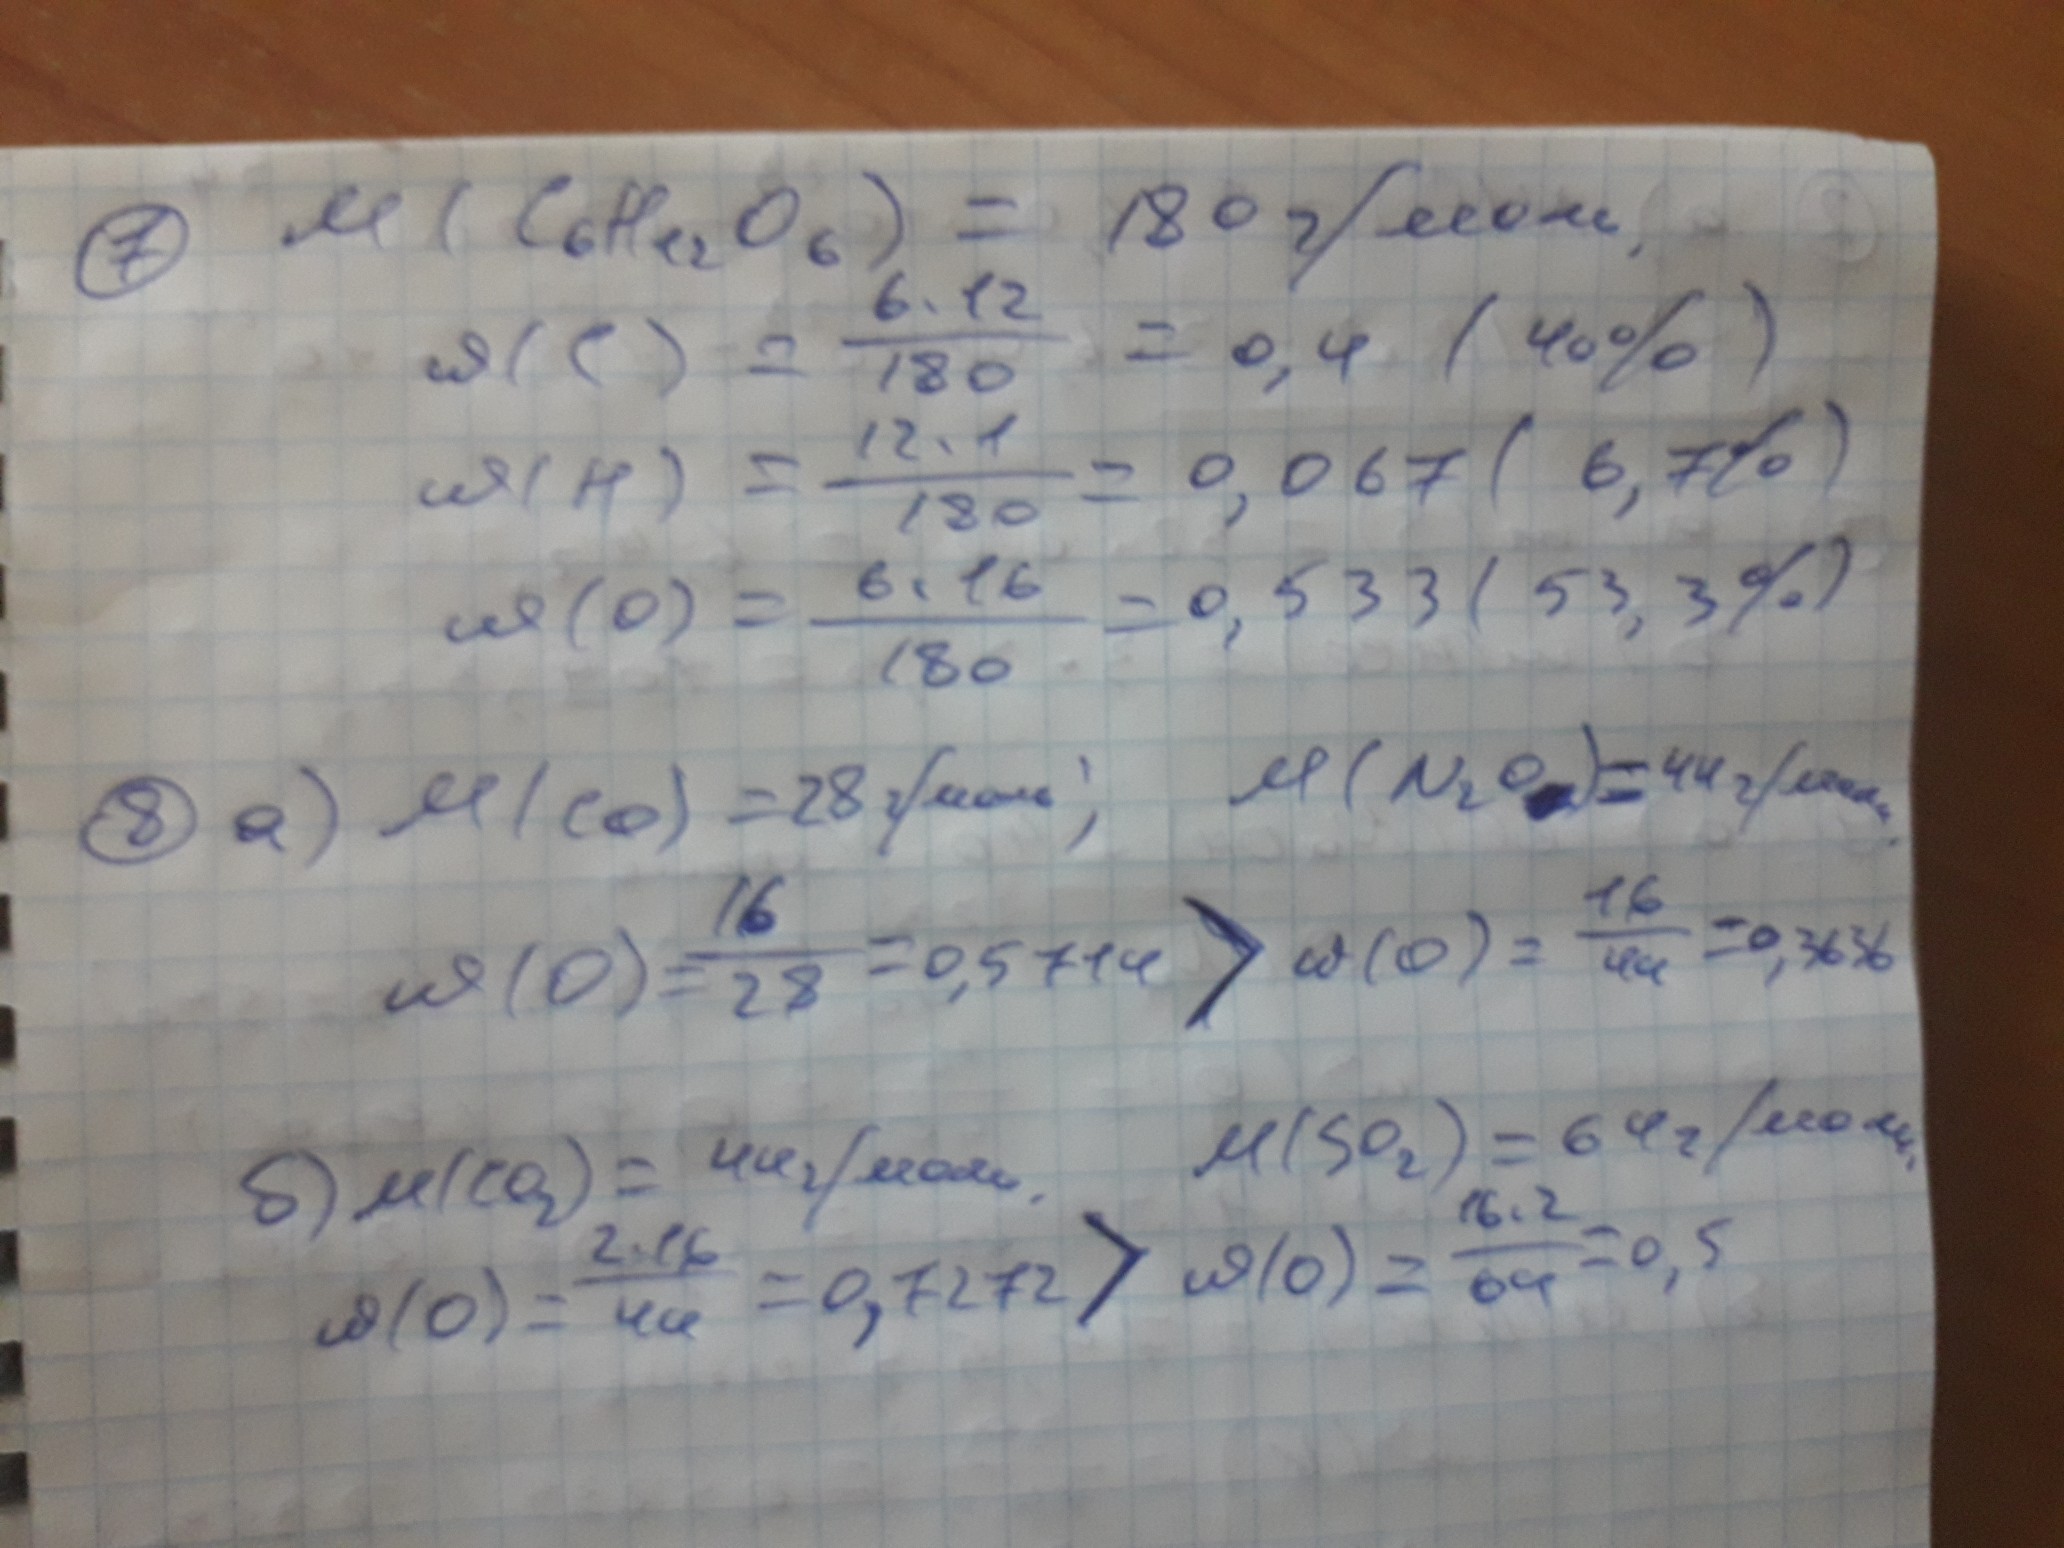 ⑦ M(C₆H₁₂O₆) = 180 г/моль.
ω(C) = 6·12/180 = 0,4 (40%)
ω(H) = 12·1/180 = 0,067 (6,7%)
ω(O) = 6·16/180 = 0,533 (53,3%)
⑧ а) M(CO) = 28 г/моль; M(N₂O) = 44 г/моль.
ω(O) = 16/28 = 0,5714 > ω(O) = 16/44 = 0,3636
б) M(CO₂) = 44 г/моль. M(SO₂) = 64 г/моль.
ω(O) = 2·16/44 = 0,7272 > ω(O) = 16·2/64 = 0,5